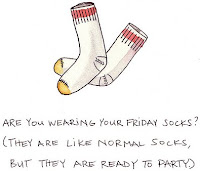 ARE YOU WEARING YOUR FRIDAY SOCKS?
(THEY ARE LIKE NORMAL SOCKS,
BUT THEY ARE READY TO PARTY.)